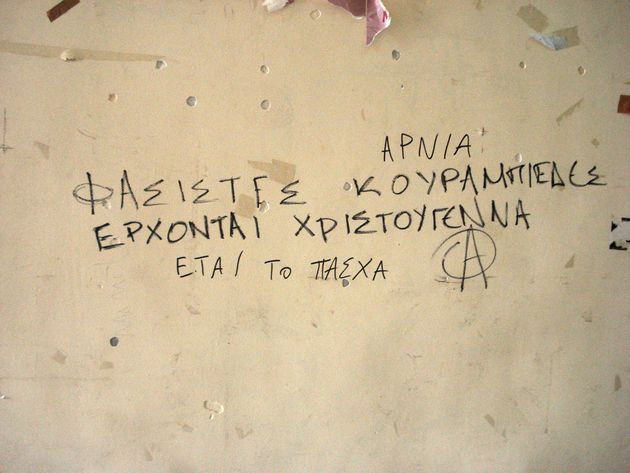 ΑΡΝΙΑ
ΦΑΣΙΣΤΕΣ ΚΟΥΡΑΜΠΙΕΔΕΣ
ΕΡΧΟΝΤΑΙ ΧΡΙΣΤΟΥΓΕΝΝΑ
ΕΤΑΙ ΤΟ ΠΑΣΧΑ Α